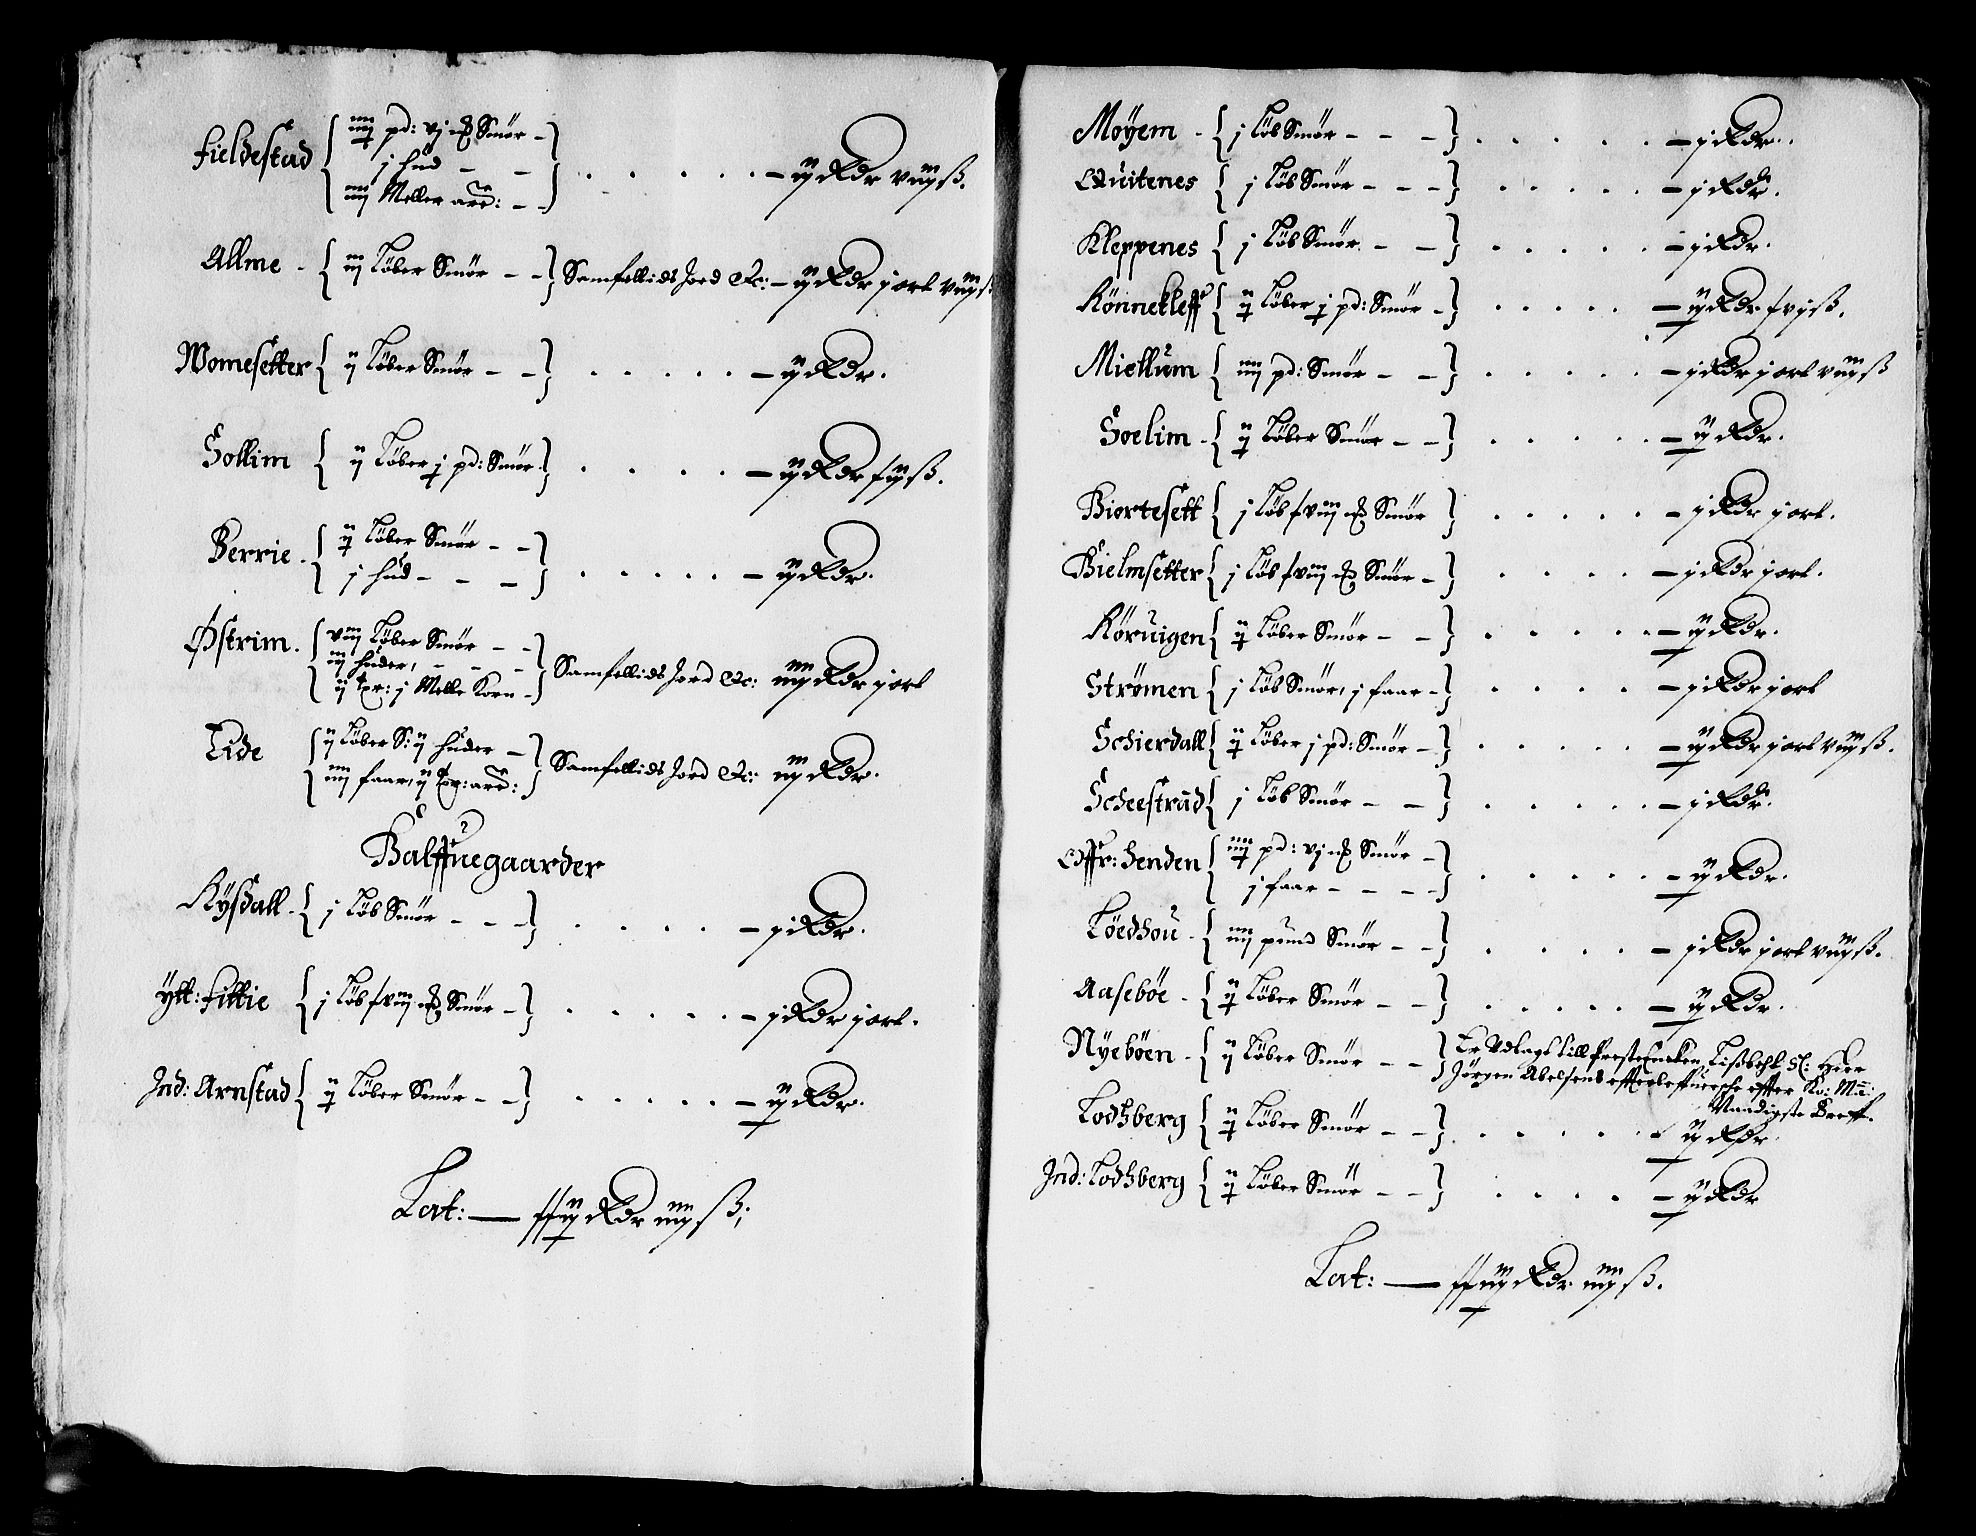 Fieldestad { iiij pd: vj m[ar]k Smør –
j hud – –
iiij Meller are: – – } – ij Rdr viij ß.
Allme – { iij Løber Smør – – } Samfellids Jord &c: – ij Rdr j ort viij ß
Womesetter { ij Løber Smør – – } – ij Rdr.
Sollim { ij Løber j pd: Smør. } – ij Rdr
Berrie. { ij Løber Smør – –
j hud – – – } – ij Rdr.
Østrim. { viij Løber Smør – –
iij huder, – – –
ij tpr: j Melle Korn – } Samfellids Jord &c: iiij Rdr j ort
Eide { ij Løber S: ij huder –
iiij faar, ij tpr: are: } Samfellids Jord &c: iij Rdr.
Halffuegaarder
Rysdall – { j Løb Smør – – – } – j Rdr.
Ytt: Fittie { j Løb Smør – } – j Rdr j ort.
Ind: Arnstad { ij Løber Smør – – } – ij Rdr.
Lat: — Rdr iiij ß;
Moyem – { j Løb Smør – – – } – j Rdr.
Quitenes { j Løb Smør – – – } – j Rdr.
Kleppenes { j Løb Smør. – – } – j Rdr.
Rønnekleff { ij Løber j pd: Smør – } – ij Rdr
Miellum { iiij pd: Smør – – } – j Rdr j ort viij ß
Soelim – { ij Løber Smør – – } – ij Rdr.
Biortesett { j Løb Smør } – j Rdr j ort.
Hielmsetter { j Løb Smør – } – j Rdr j ort.
Røruigen { ij Løber Smør – – } – ij Rdr.
Strømen { j Løb Smør, j faar – } – j Rdr j ort
Schierdall { ij Løber j pd: Smør – } – ij Rdr j ort viij ß.
Scheestrand { j Løb Smør – – } – j Rdr.
Offr: Henden { iiij pd: vj m[ar]k Smør –
j faar – – – – } – ij Rdr.
Løedhou – { iiij pund Smør – – } – j Rdr j ort viij ß.
Aasebøe – { ij Løber Smør – – } – ij Rdr.
Nyebøen – { ij Løber Smør – – } Er Vdlagt till PresteEncken, Lisbeht, Sl: Herr
Jørgen Abelsens effterleffuersche effter Ko: Ma:
Naadigste Breff.
Lodhberg { ij Løber Smør – – } – ij Rdr.
Ind: Lodhberg { ij Løber Smør – – } – ij Rdr
Lat: — Rdr iiij ß.